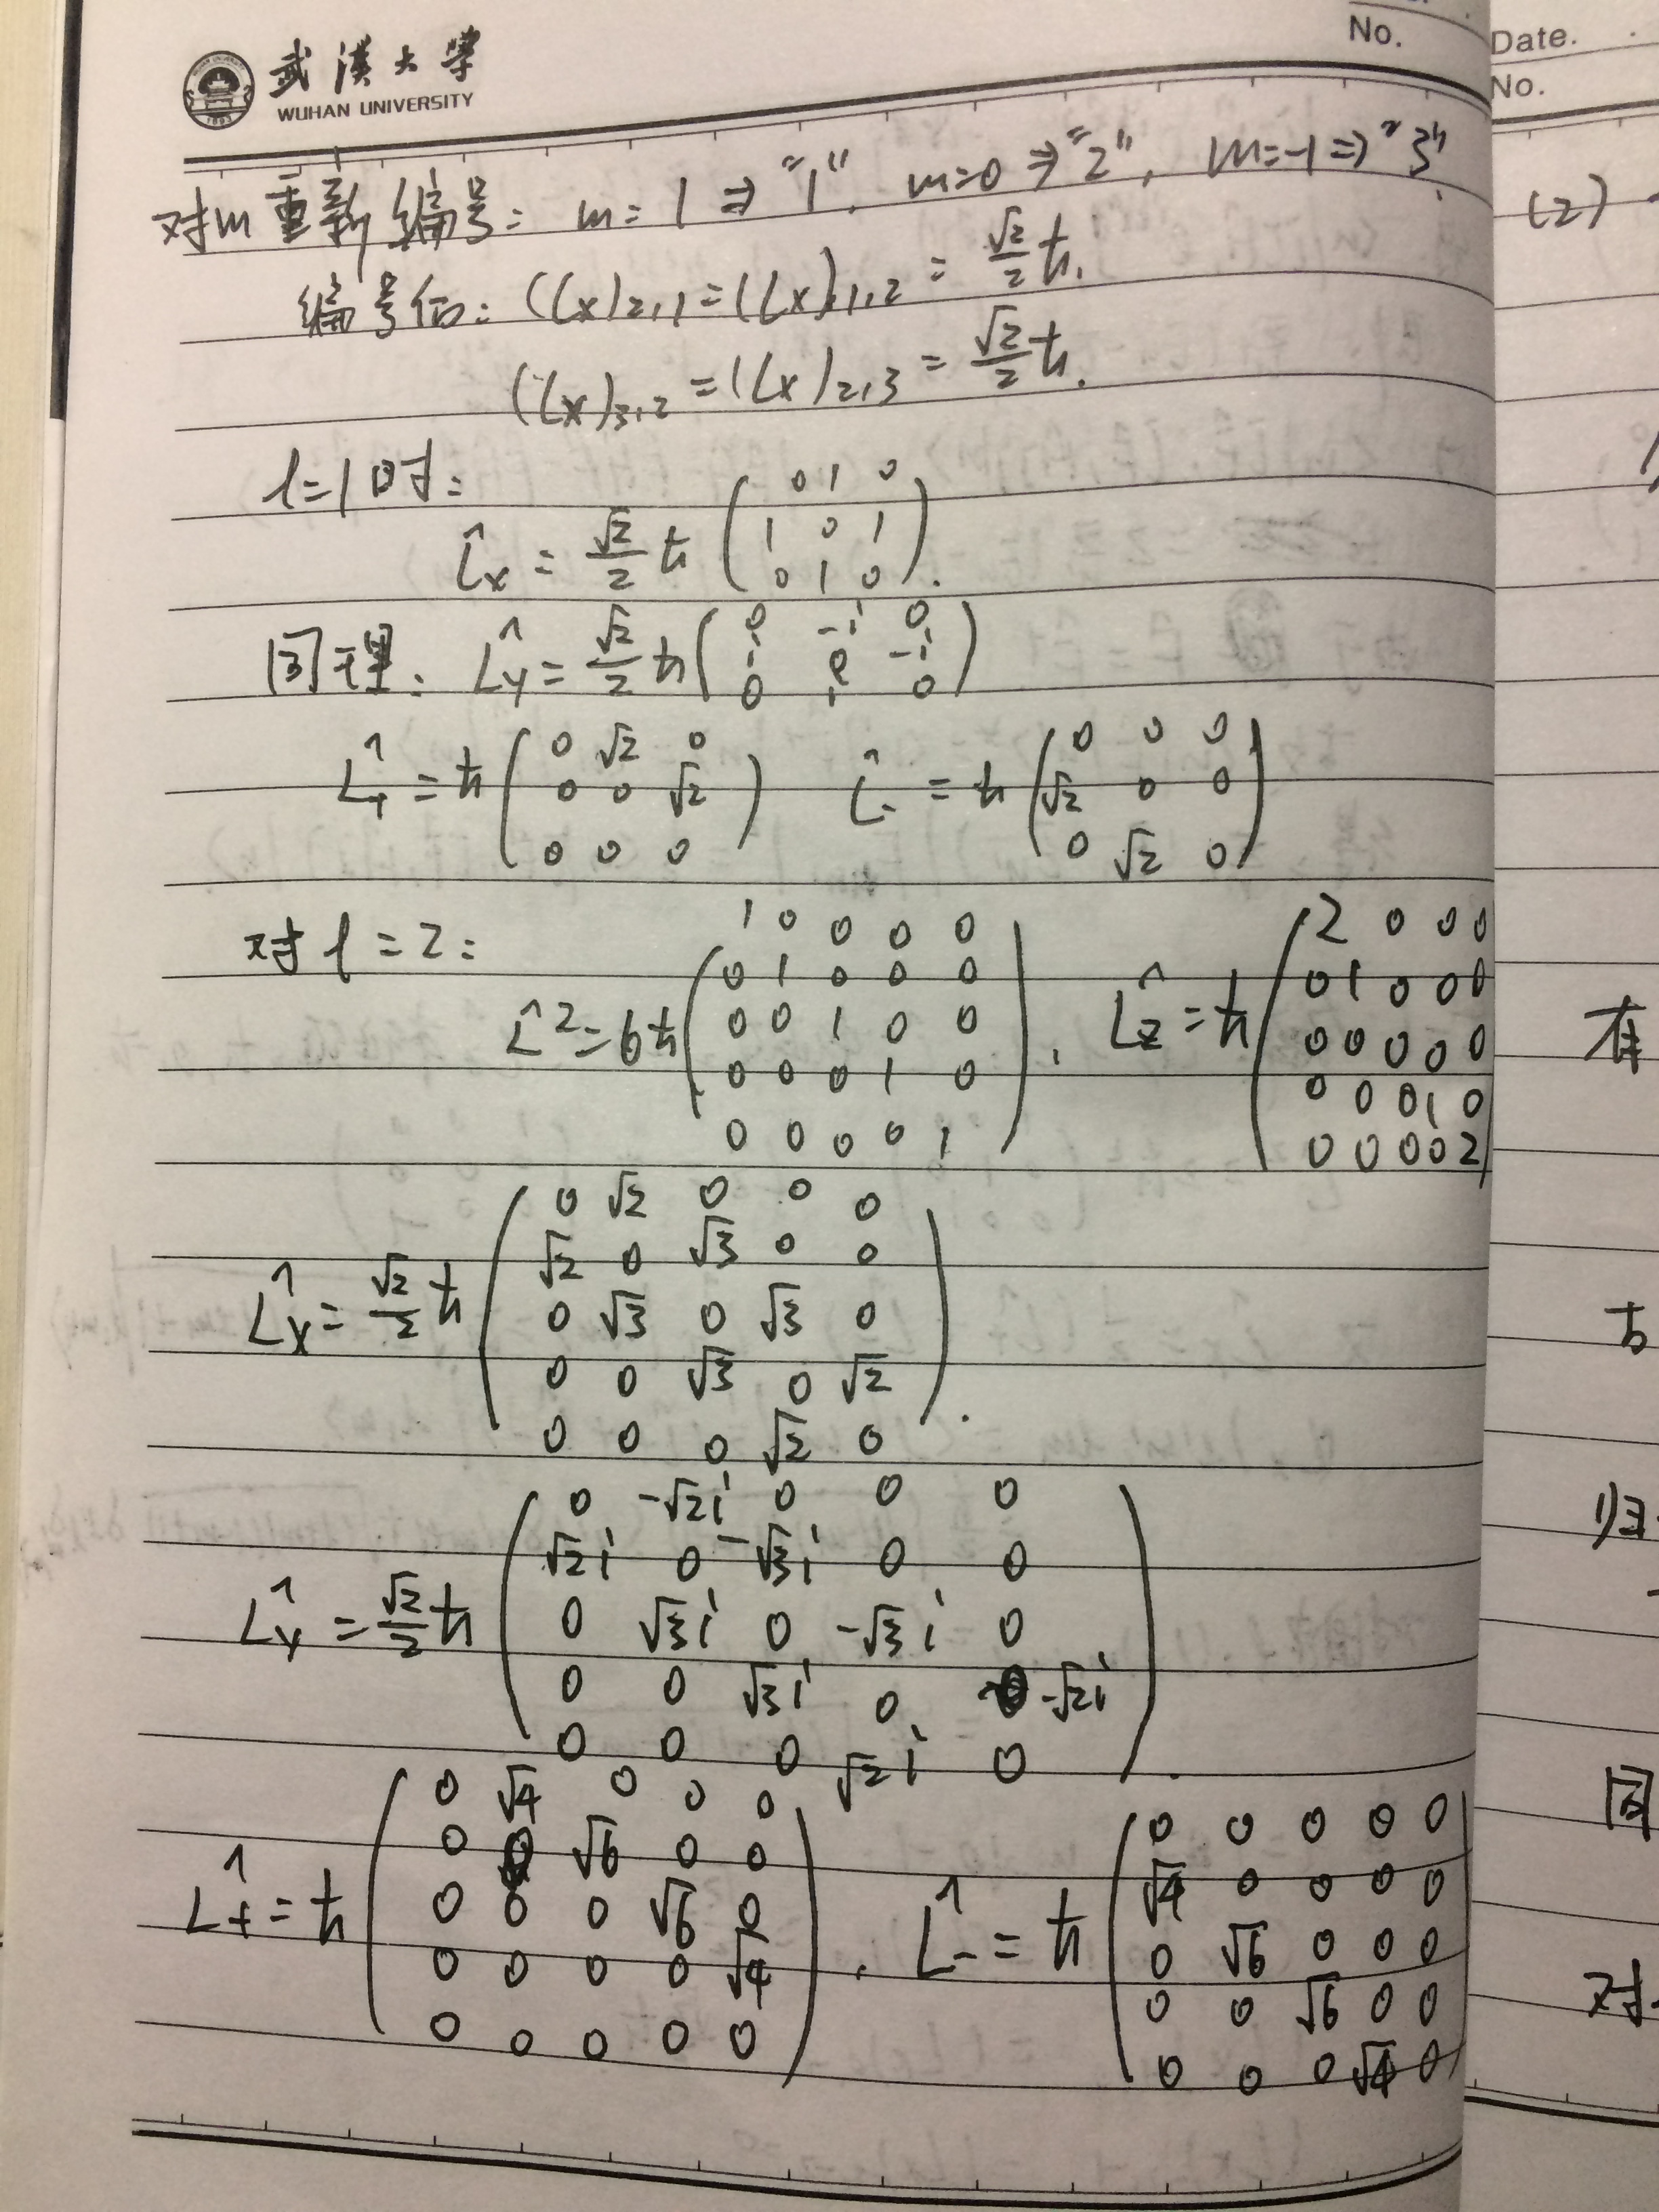 No.
武漢大学
WUHAN UNIVERSITY
对m重新编号: m=1 ⇒ "1". m=0 ⇒ "2", m=-1 ⇒ "3".
编号后: (Lx)2,1 = (Lx)1,2 = √2/2 ħ.
(Lx)3,2 = (Lx)2,3 = √2/2 ħ.
l=1时:
L̂x = √2/2 ħ
( 0 1 0
1 0 1
0 1 0 ).
同理: L̂y = √2/2 ħ
( 0 -i 0
i 0 -i
0 i 0 )
L̂+ = ħ
( 0 √2 0
0 0 √2
0 0 0 )
L̂- = ħ
( 0 0 0
√2 0 0
0 √2 0 )
对l=2:
L̂² = 6ħ
( 1 0 0 0 0
0 1 0 0 0
0 0 1 0 0
0 0 0 1 0
0 0 0 0 1 ),
L̂z = ħ
( 2 0 0 0
0 1 0 0 0
0 0 0 0 0
0 0 0 1 0
0 0 0 0 2
L̂x = √2/2 ħ
( 0 √2 0 0 0
√2 0 √3 0 0
0 √3 0 √3 0
0 0 √3 0 √2
0 0 0 √2 0 ).
L̂y = √2/2 ħ
( 0 -√2i 0 0 0
√2i 0 -√3i 0 0
0 √3i 0 -√3i 0
0 0 √3i 0 -√2i
0 0 0 √2i 0 ).
L̂+ = ħ
( 0 √4 0 0 0
0 0 √6 0 0
0 0 0 √6 0
0 0 0 0 √4
0 0 0 0 0 ),
L̂- = ħ
( 0 0 0 0 0
√4 0 0 0 0
0 √6 0 0 0
0 0 √6 0 0
0 0 0 √4 0 )
Date.
No.
(2)
有
归
同
对